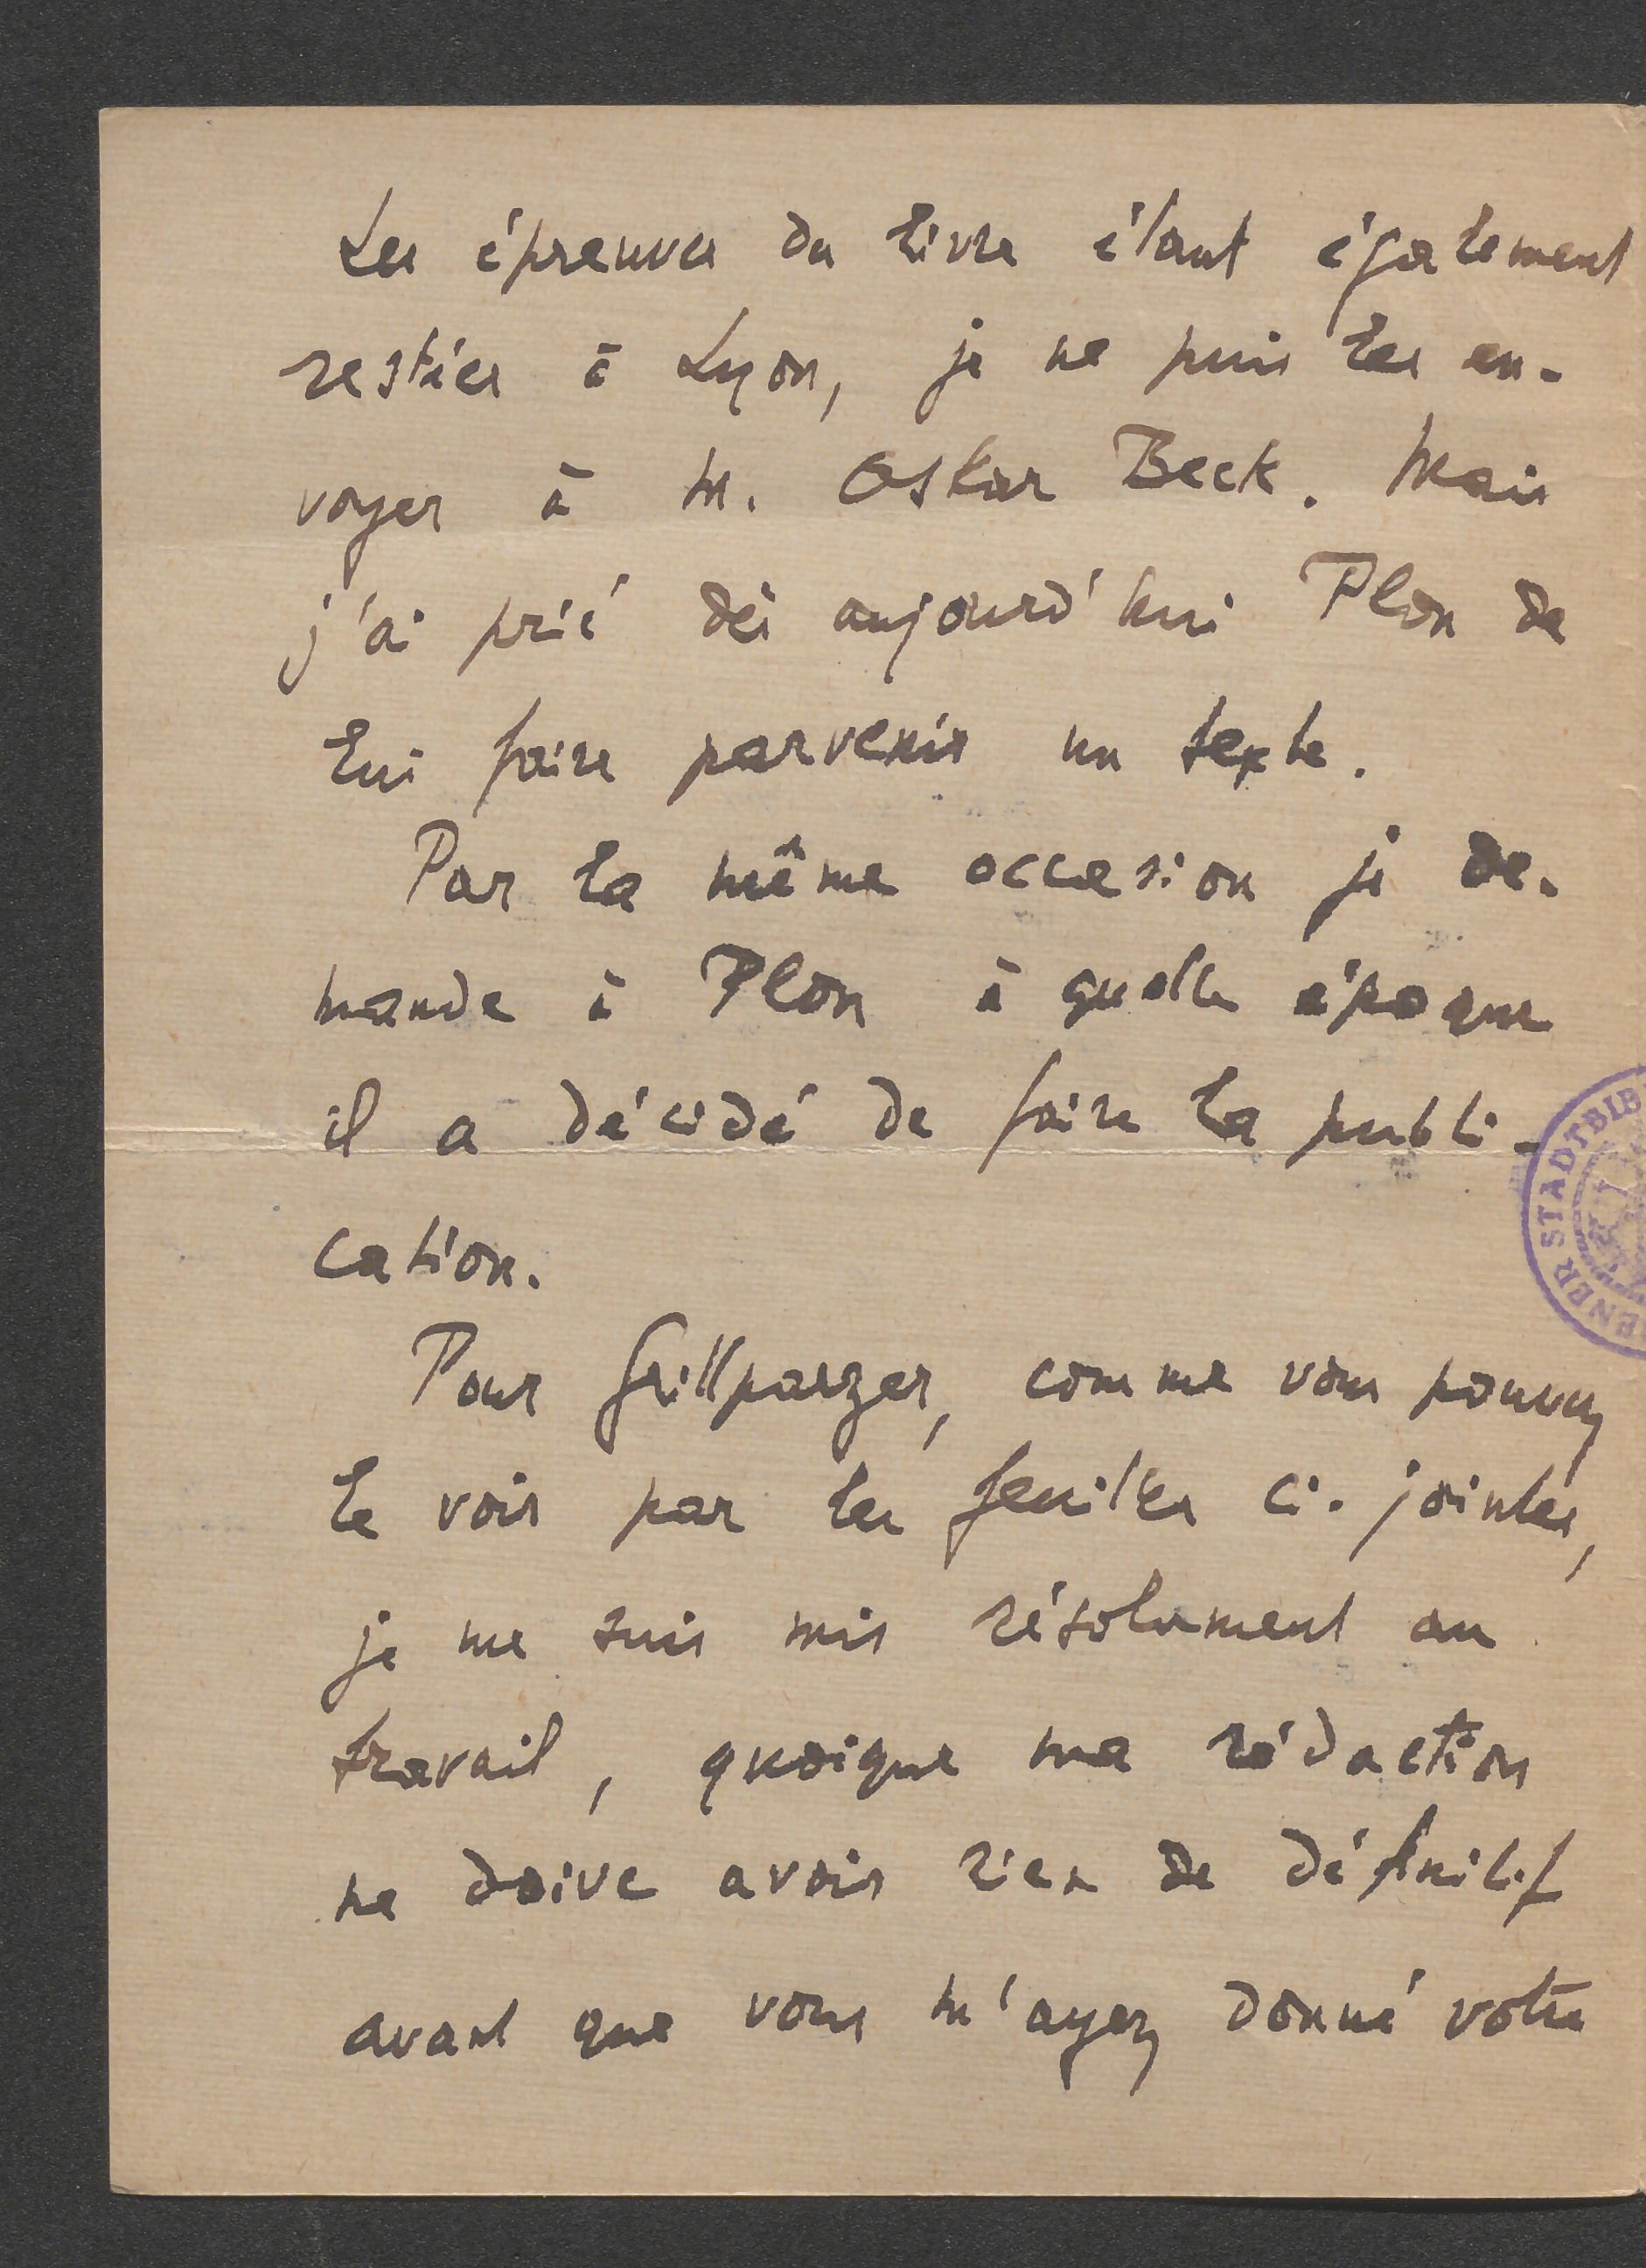 Les épreuves du livre étant également
restées à Lyon, je ne puis les en-
voyer à M. Oskar Beck. Mais
j'ai prié dès aujourd'hui Plon de
lui faire parvenir un texte.
Par la même occasion je de-
mande à Plon à quelle époque
il a décidé de faire la publi-
cation.
Pour Grillparzer, comme vous pouvez
le voir par les feuilles ci-jointes,
je me suis mis résolument au
travail, quoique ma rédaction
ne doive avoir rien de définitif
avant que vous m'ayez donné votre
ENER STADTBIB